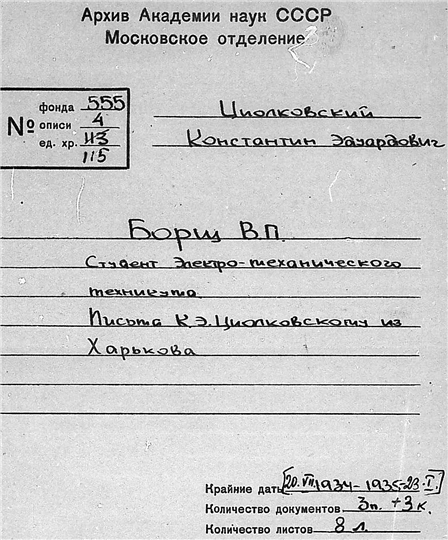 Архив Академии наук СССР
Московское отделение
№
фонда 555
описи 4
ед. хр. 113
115
Циолковский
Константин Эдуардович
Борщ В.П.
Студент Электро-механического
техникума.
Письма К.Э. Циолковскому из
Харькова
Крайние даты [20.VII.1934-1935-23.I.]
Количество документов 3п. +3к.
Количество листов 8 л.